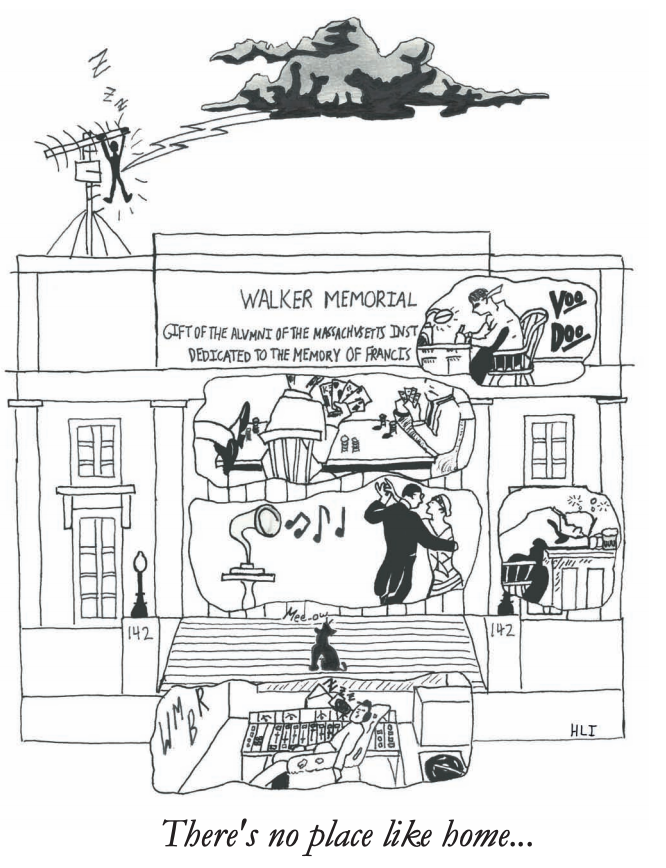 Z
Z
Z
WALKER MEMORIAL
GIFT OF THE ALVMNI OF THE MASSACHVSETTS INST
DEDICATED TO THE MEMORY OF FRANCIS
VOO
DOO
Mee-ow
142
142
WMBR
Z
Z
Z
HLI
There's no place like home...